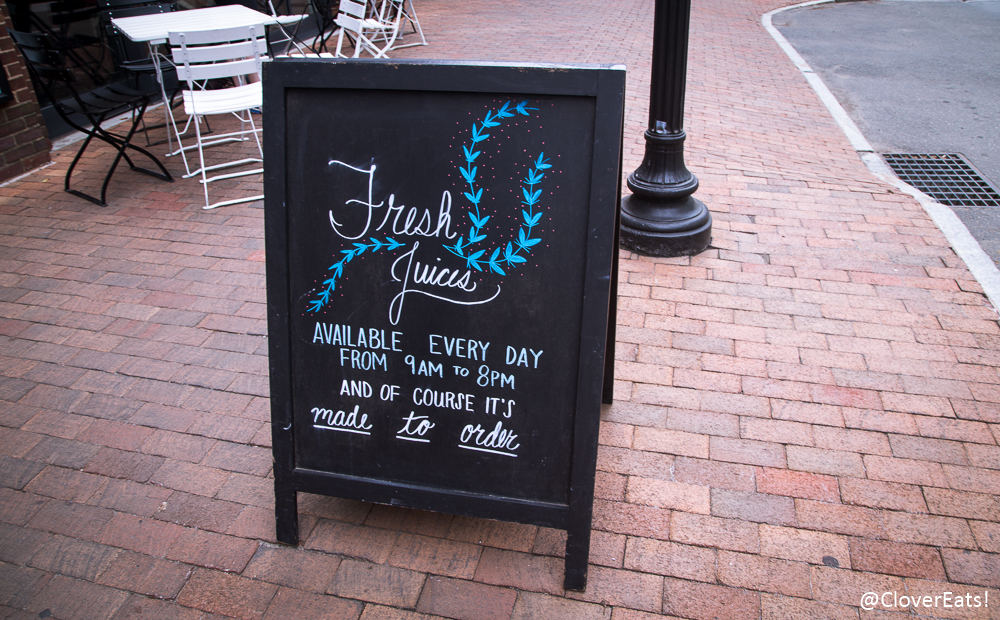 Fresh
Juices
AVAILABLE EVERY DAY
FROM 9AM TO 8PM
AND OF COURSE IT'S
made to order
@CloverEats!